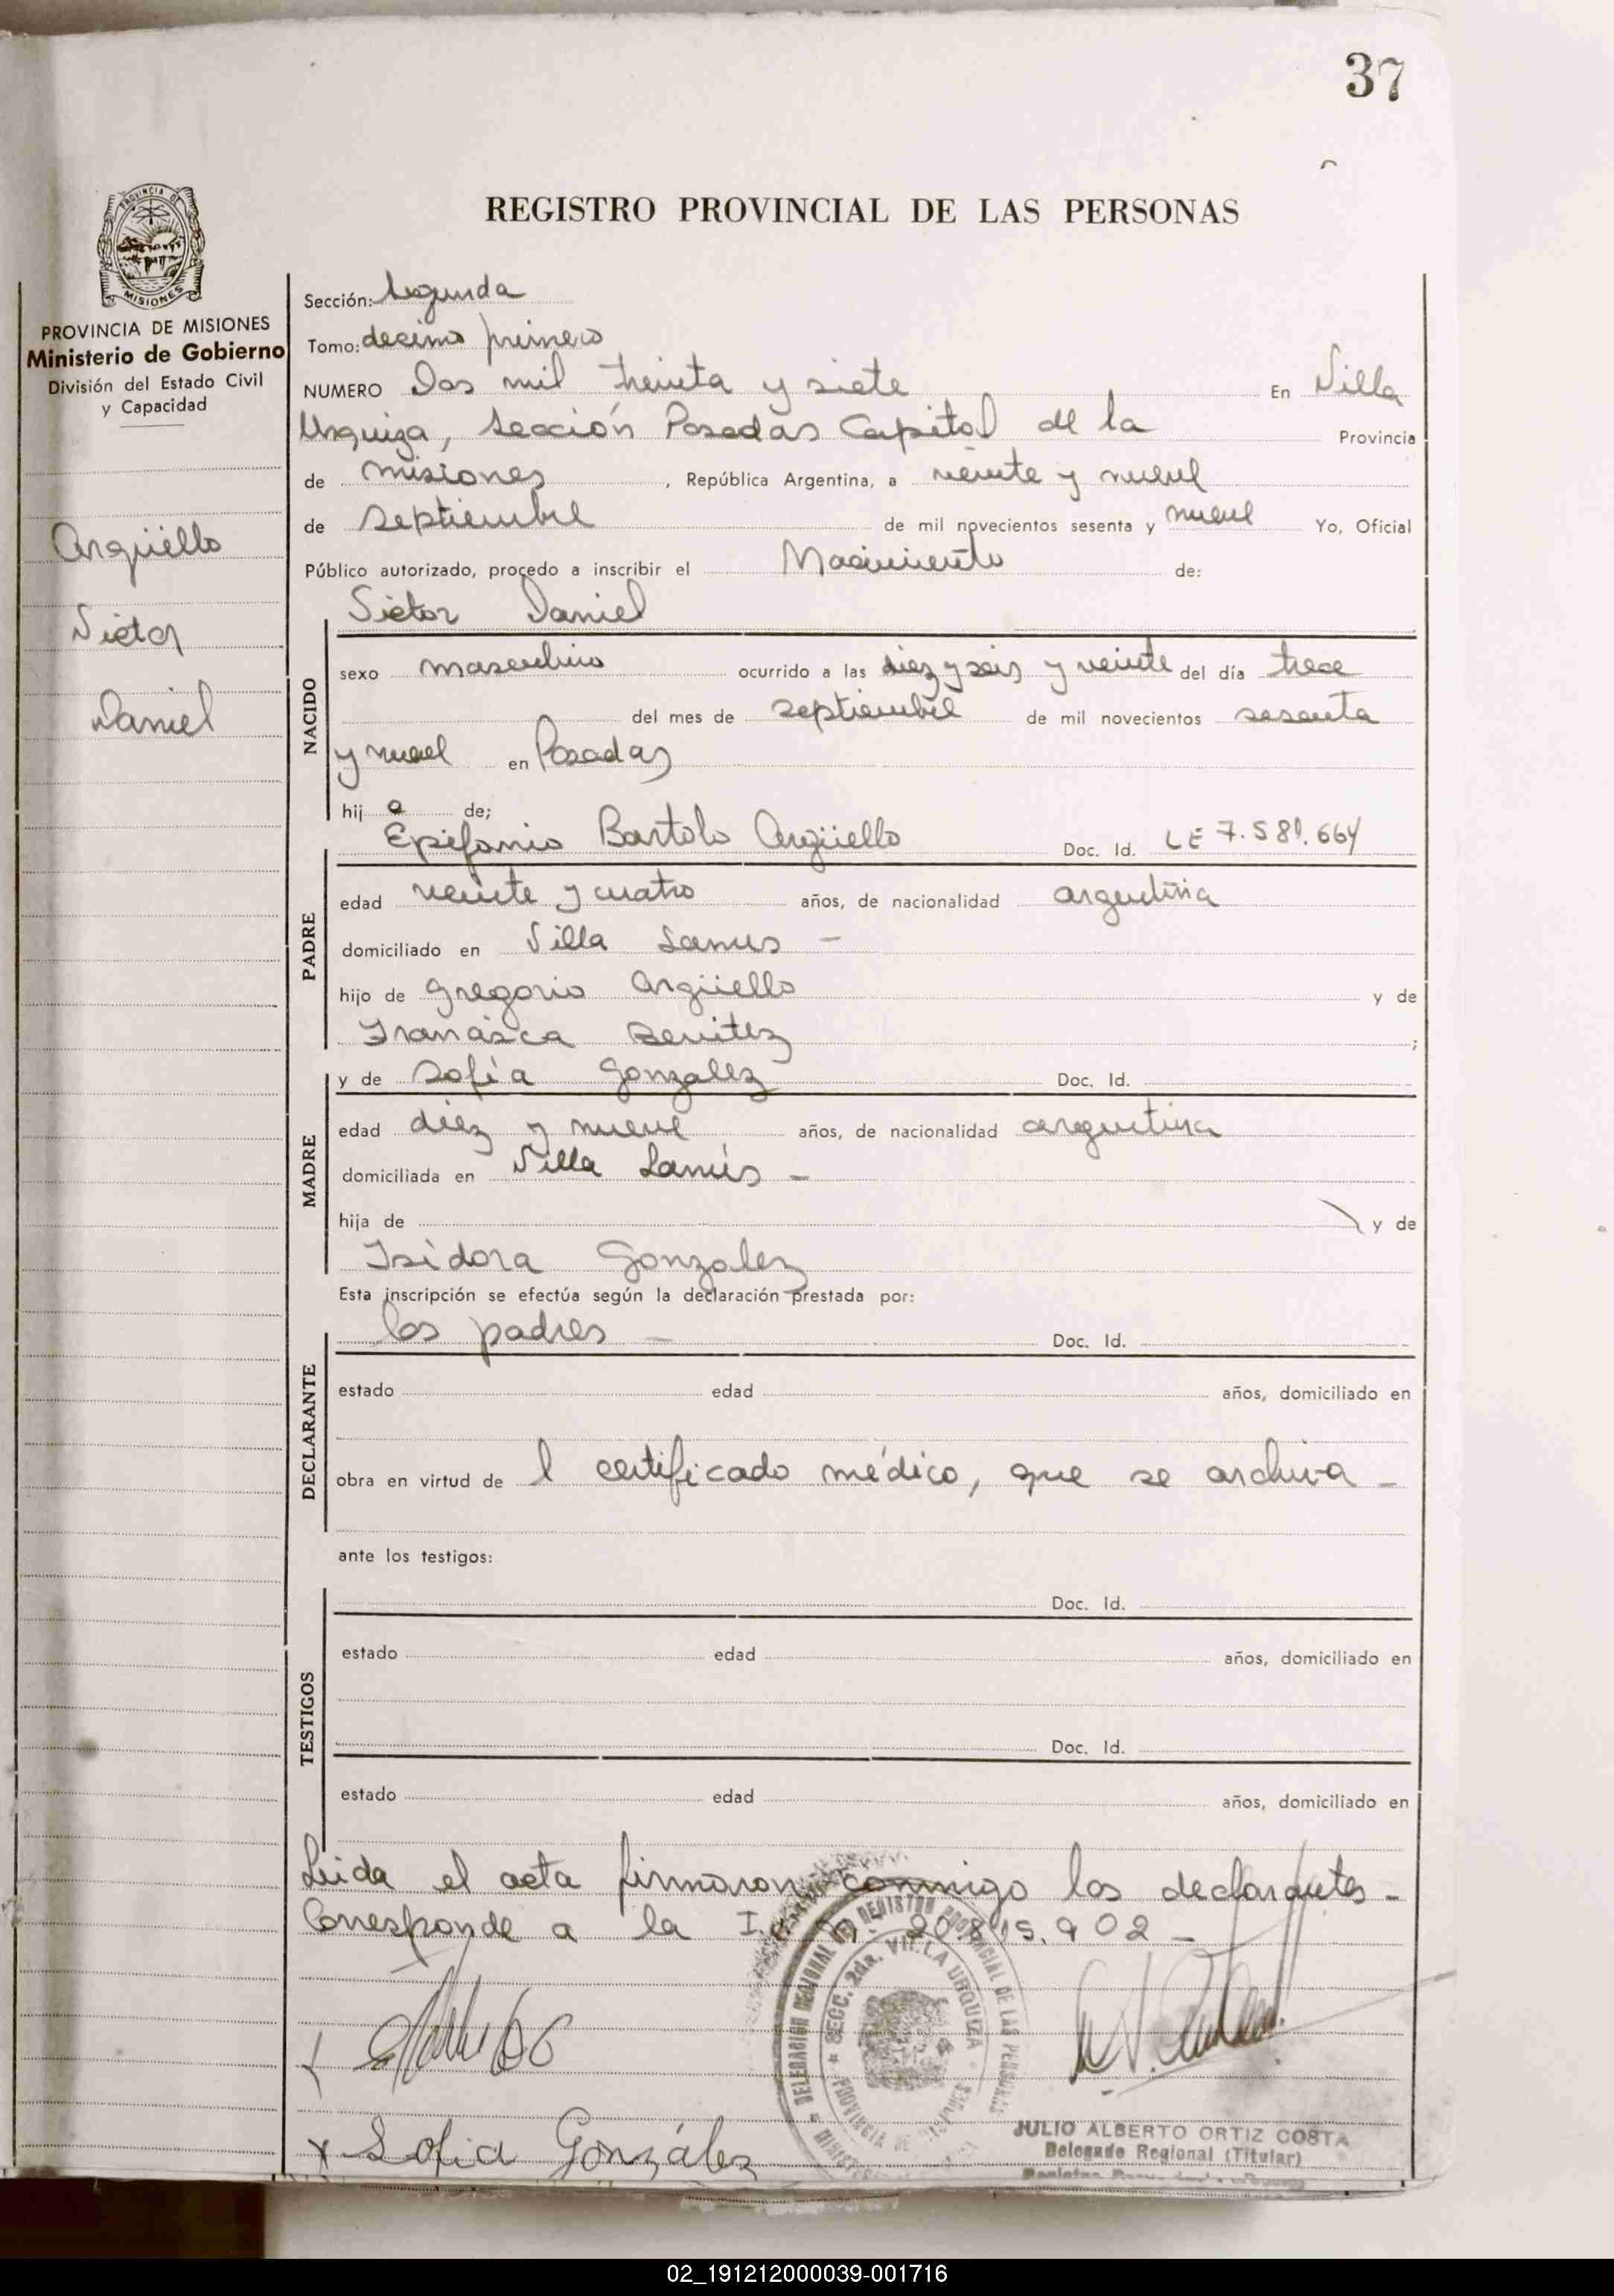 37
PROVINCIA DE
MISIONES
PROVINCIA DE MISIONES
Ministerio de Gobierno
División del Estado Civil
y Capacidad
Argüello
Victor
Daniel
REGISTRO PROVINCIAL DE LAS PERSONAS
Sección: Segunda
Tomo: decimo primero
NUMERO Dos mil treinta y siete En Villa
Urquiza, Sección Posadas Capital de la Provincia
de misiones, República Argentina, a veinte y nueve
de septiembre de mil novecientos sesenta y nueve Yo, Oficial
Público autorizado, procedo a inscribir el Nacimiento de:
Victor Daniel
NACIDO
sexo masculino ocurrido a las diez y seis y veinte del día trece
del mes de septiembre de mil novecientos sesenta
y nueve en Posadas
hij o de;
Epifanio Bartolo Argüello Doc. Id. LE 7.581.664
PADRE
edad veinte y cuatro años, de nacionalidad argentina
domiciliado en Villa Lanus -
hijo de Gregorio Argüello y de
Francisca Benitez ;
y de Sofía Gonzalez Doc. Id.
MADRE
edad diez y nueve años, de nacionalidad argentina
domiciliada en Villa Lanús -
hija de y de
Isidora Gonzalez
Esta inscripción se efectúa según la declaración prestada por:
los padres - Doc. Id.
DECLARANTE
estado edad años, domiciliado en
obra en virtud de l certificado médico, que se archiva -
ante los testigos:
Doc. Id.
TESTIGOS
estado edad años, domiciliado en
Doc. Id.
estado edad años, domiciliado en
Leida el acta firmaron conmigo los declarantes -
Corresponde a la 20.815.902 -
DELEGACION REGIONAL DEL REGISTRO PROVINCIAL DE LAS PERSONAS
SECC. 2da. VILLA URQUIZA
PROVINCIA DE
x Sofia González
JULIO ALBERTO ORTIZ COSTA
Delegado Regional (Titular)
02_191212000039-001716